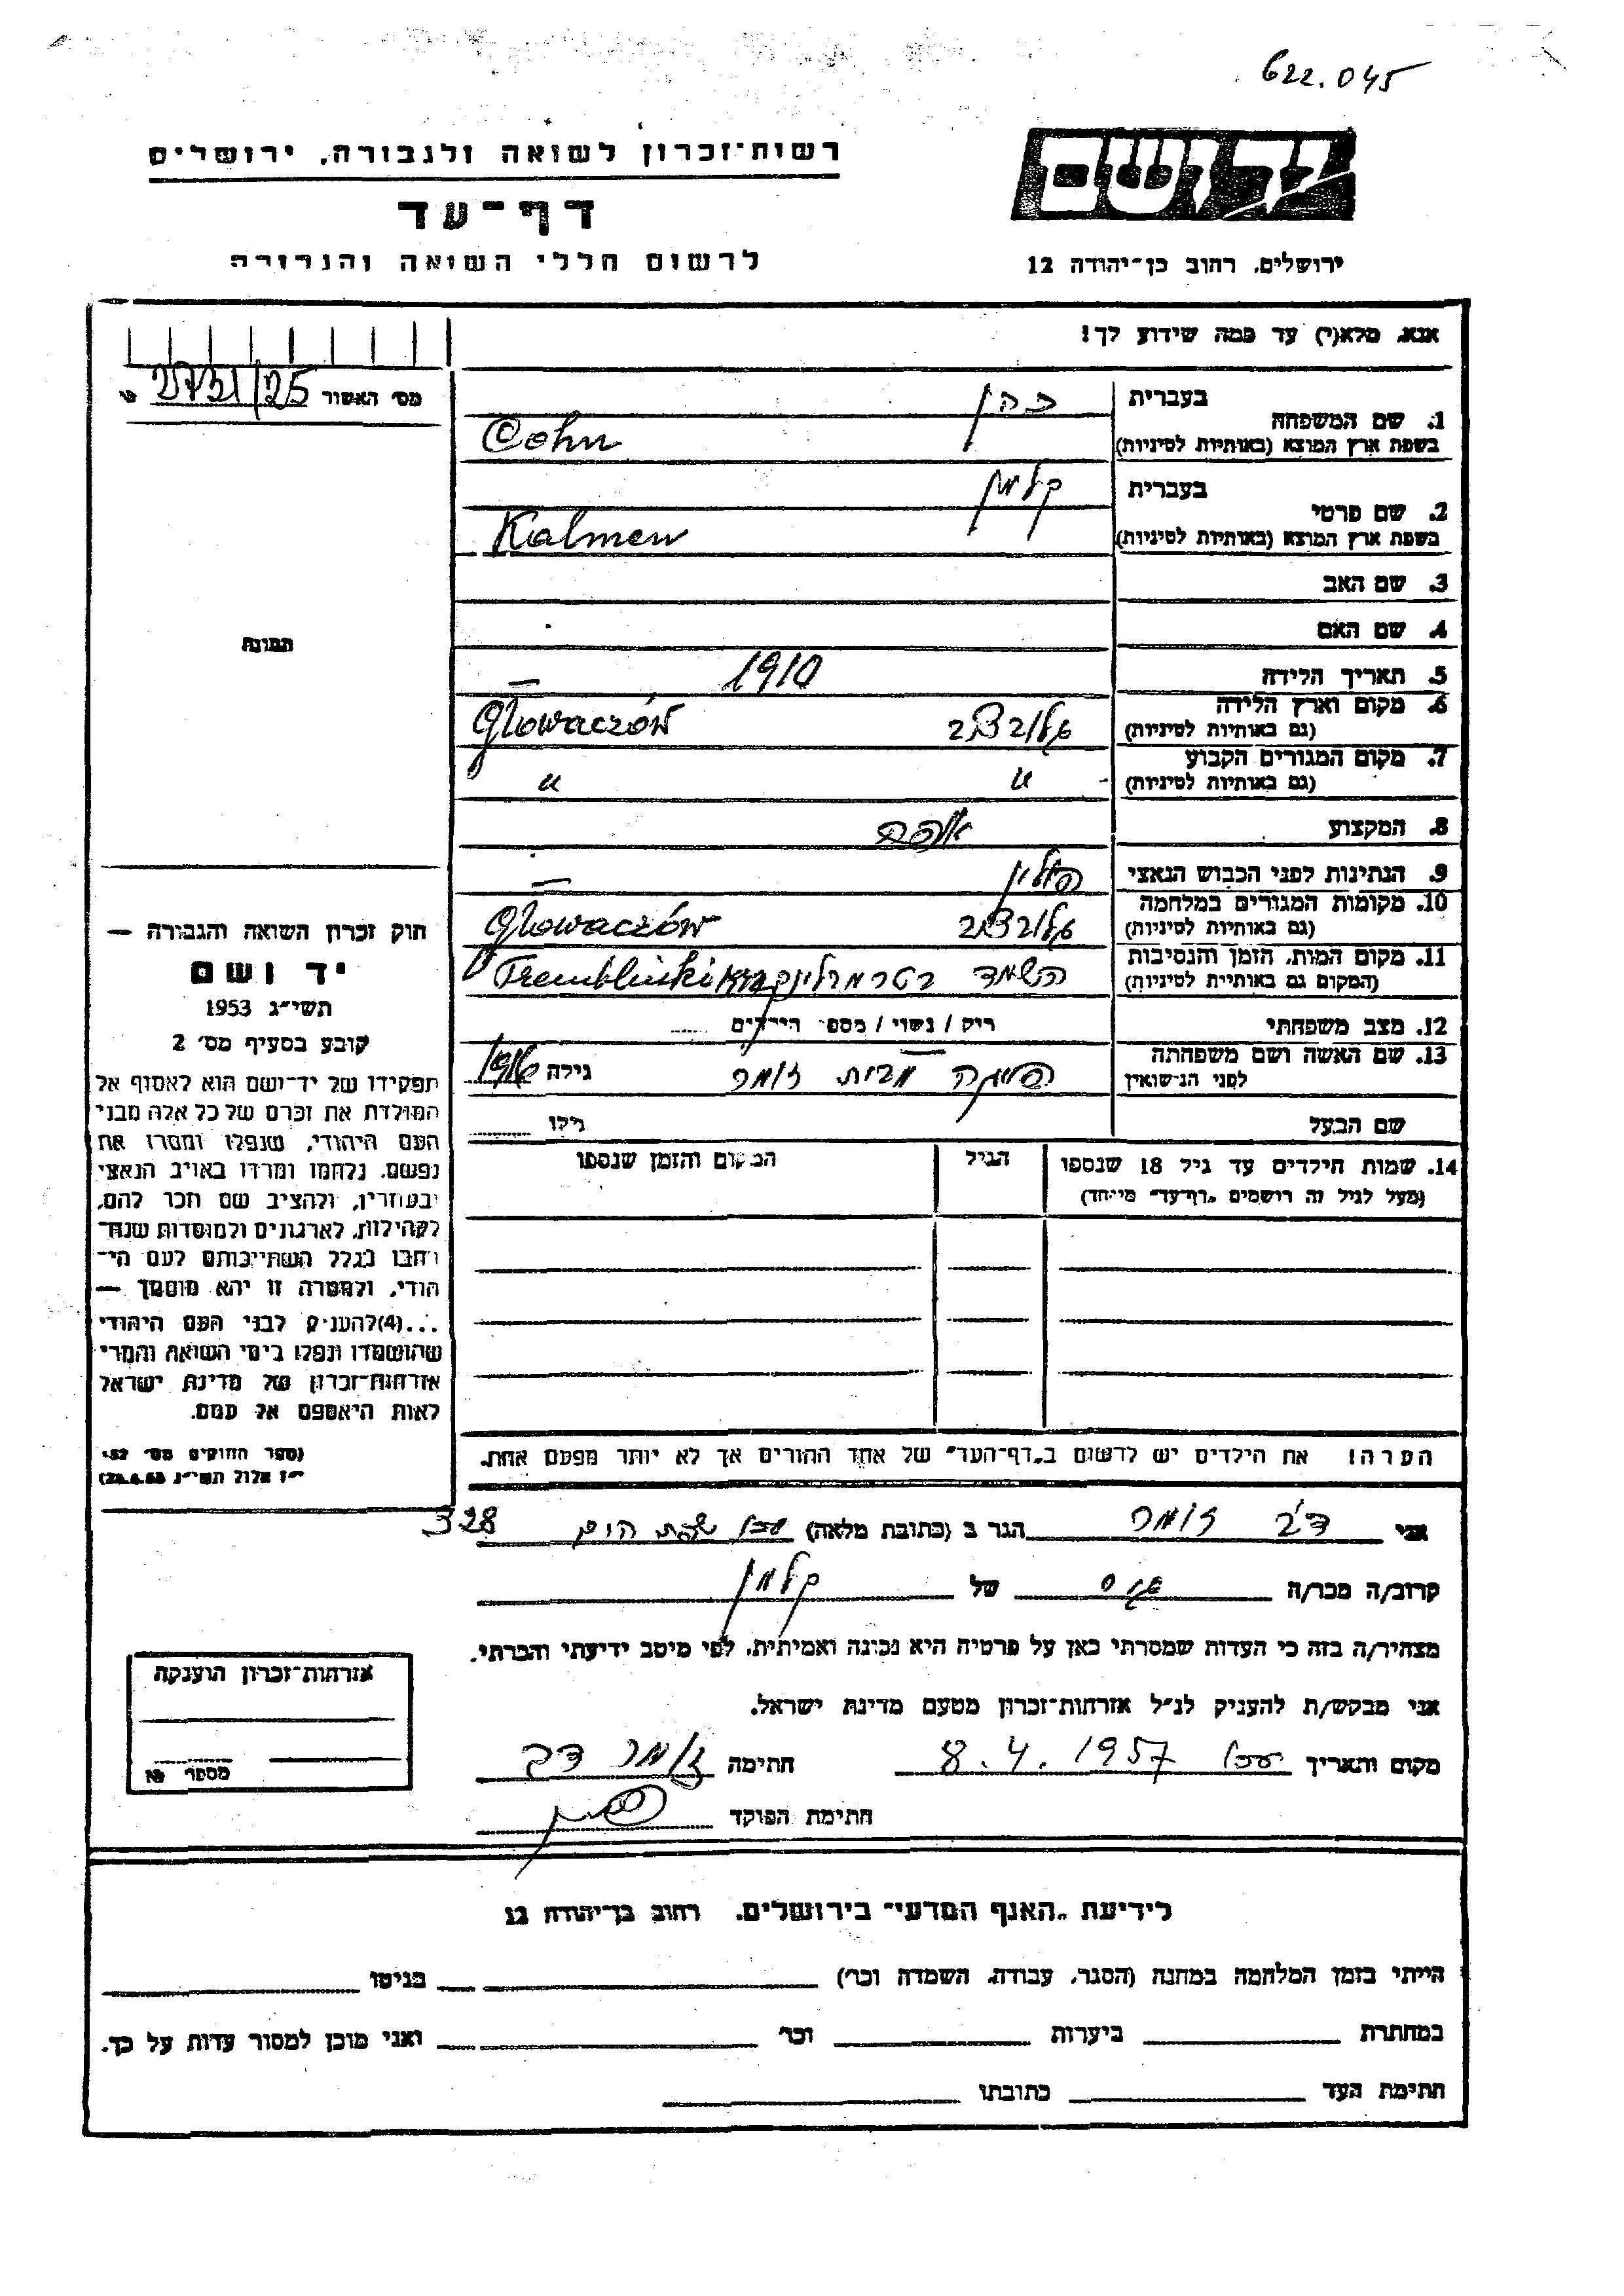 622.045
יד ושם
רשות־זכרון לשואה ולגבורה, ירושלים
דף־עד
לרשום חללי השואה והגבורה
ירושלים, רחוב בן־יהודה 12
אנא, מלא(י) עד כמה שידוע לך!
מס׳ האשור 2731/25
1. שם המשפחה
בעברית כהן
בשפת ארץ המוצא (באותיות לטיניות) Cohn
2. שם פרטי
בעברית קלמן
בשפת ארץ המוצא (באותיות לטיניות) Kalmen
3. שם האב
4. שם האם
5. תאריך הלידה 1910 —
6. מקום וארץ הלידה
(גם באותיות לטיניות) Głowaczów
7. מקום המגורים הקבוע
(גם באותיות לטיניות) " "
8. המקצוע
9. הנתינות לפני הכבוש הנאצי פולין —
10. מקומות המגורים במלחמה
(גם באותיות לטיניות) Głowaczów
11. מקום המות, הזמן והנסיבות
(המקום גם באותיית לטיניות) השמד Tremblinki
12. מצב משפחתי רוק / נשוי / מספר הילדים
13. שם האשה ושם משפחתה
לפני הנישואין מבית גילה 1916
שם הבעל גילו
14. שמות הילדים עד גיל 18 שנספו
(מעל לגיל זה רושמים „דף־עד״ מייחד)
הגיל
המקום והזמן שנספו
הערה! את הילדים יש לרשום ב„דף־העד״ של אחד ההורים אך לא יותר מפעם אחת.
תמונה
חוק זכרון השואה והגבורה —
יד ושם
תשי״ג 1953
קובע בסעיף מס׳ 2
תפקידו של יד־ושם הוא לאסוף אל
המולדת את זכרם של כל אלה מבני
העם היהודי, שנפלו ומסרו את
נפשם, נלחמו ומרדו באויב הנאצי
ובעוזריו, ולהציב שם וזכר להם,
לקהילות, לארגונים ולמוסדות שנח־
רבו בגלל השתייכותם לעם הי־
הודי, ולמטרה זו יהא מוסמך —
...(4)להעניק לבני העם היהודי
שהושמדו ונפלו בימי השואה והמרי
אזרחות־זכרון של מדינת ישראל
לאות היאספם אל עמם.
(ספר החוקים מס׳ 132,
י״ז אלול תשי״ג 28.8.53)
אני דב הגר ב (כתובת מלאה) 328
קרוב/ה מכר/ה גיס של קלמן
מצהיר/ה בזה כי העדות שמסרתי כאן על פרטיה היא נכונה ואמיתית, לפי מיטב ידיעתי והכרתי.
אני מבקש/ת להעניק לנ״ל אזרחות־זכרון מטעם מדינת ישראל.
מקום ותאריך עכו 8.4.1957 חתימה דב
חתימת הפוקד
אזרחות־זכרון הוענקה
מספר
לידיעת „האגף המדעי״ בירושלים, רחוב בן־יהודה 12
הייתי בזמן המלחמה במחנה (הסגר, עבודה, השמדה וכו׳) בגיטו
במחתרת ביערות וכו׳ ואני מוכן למסור עדות על כך.
חתימת העד כתובתו